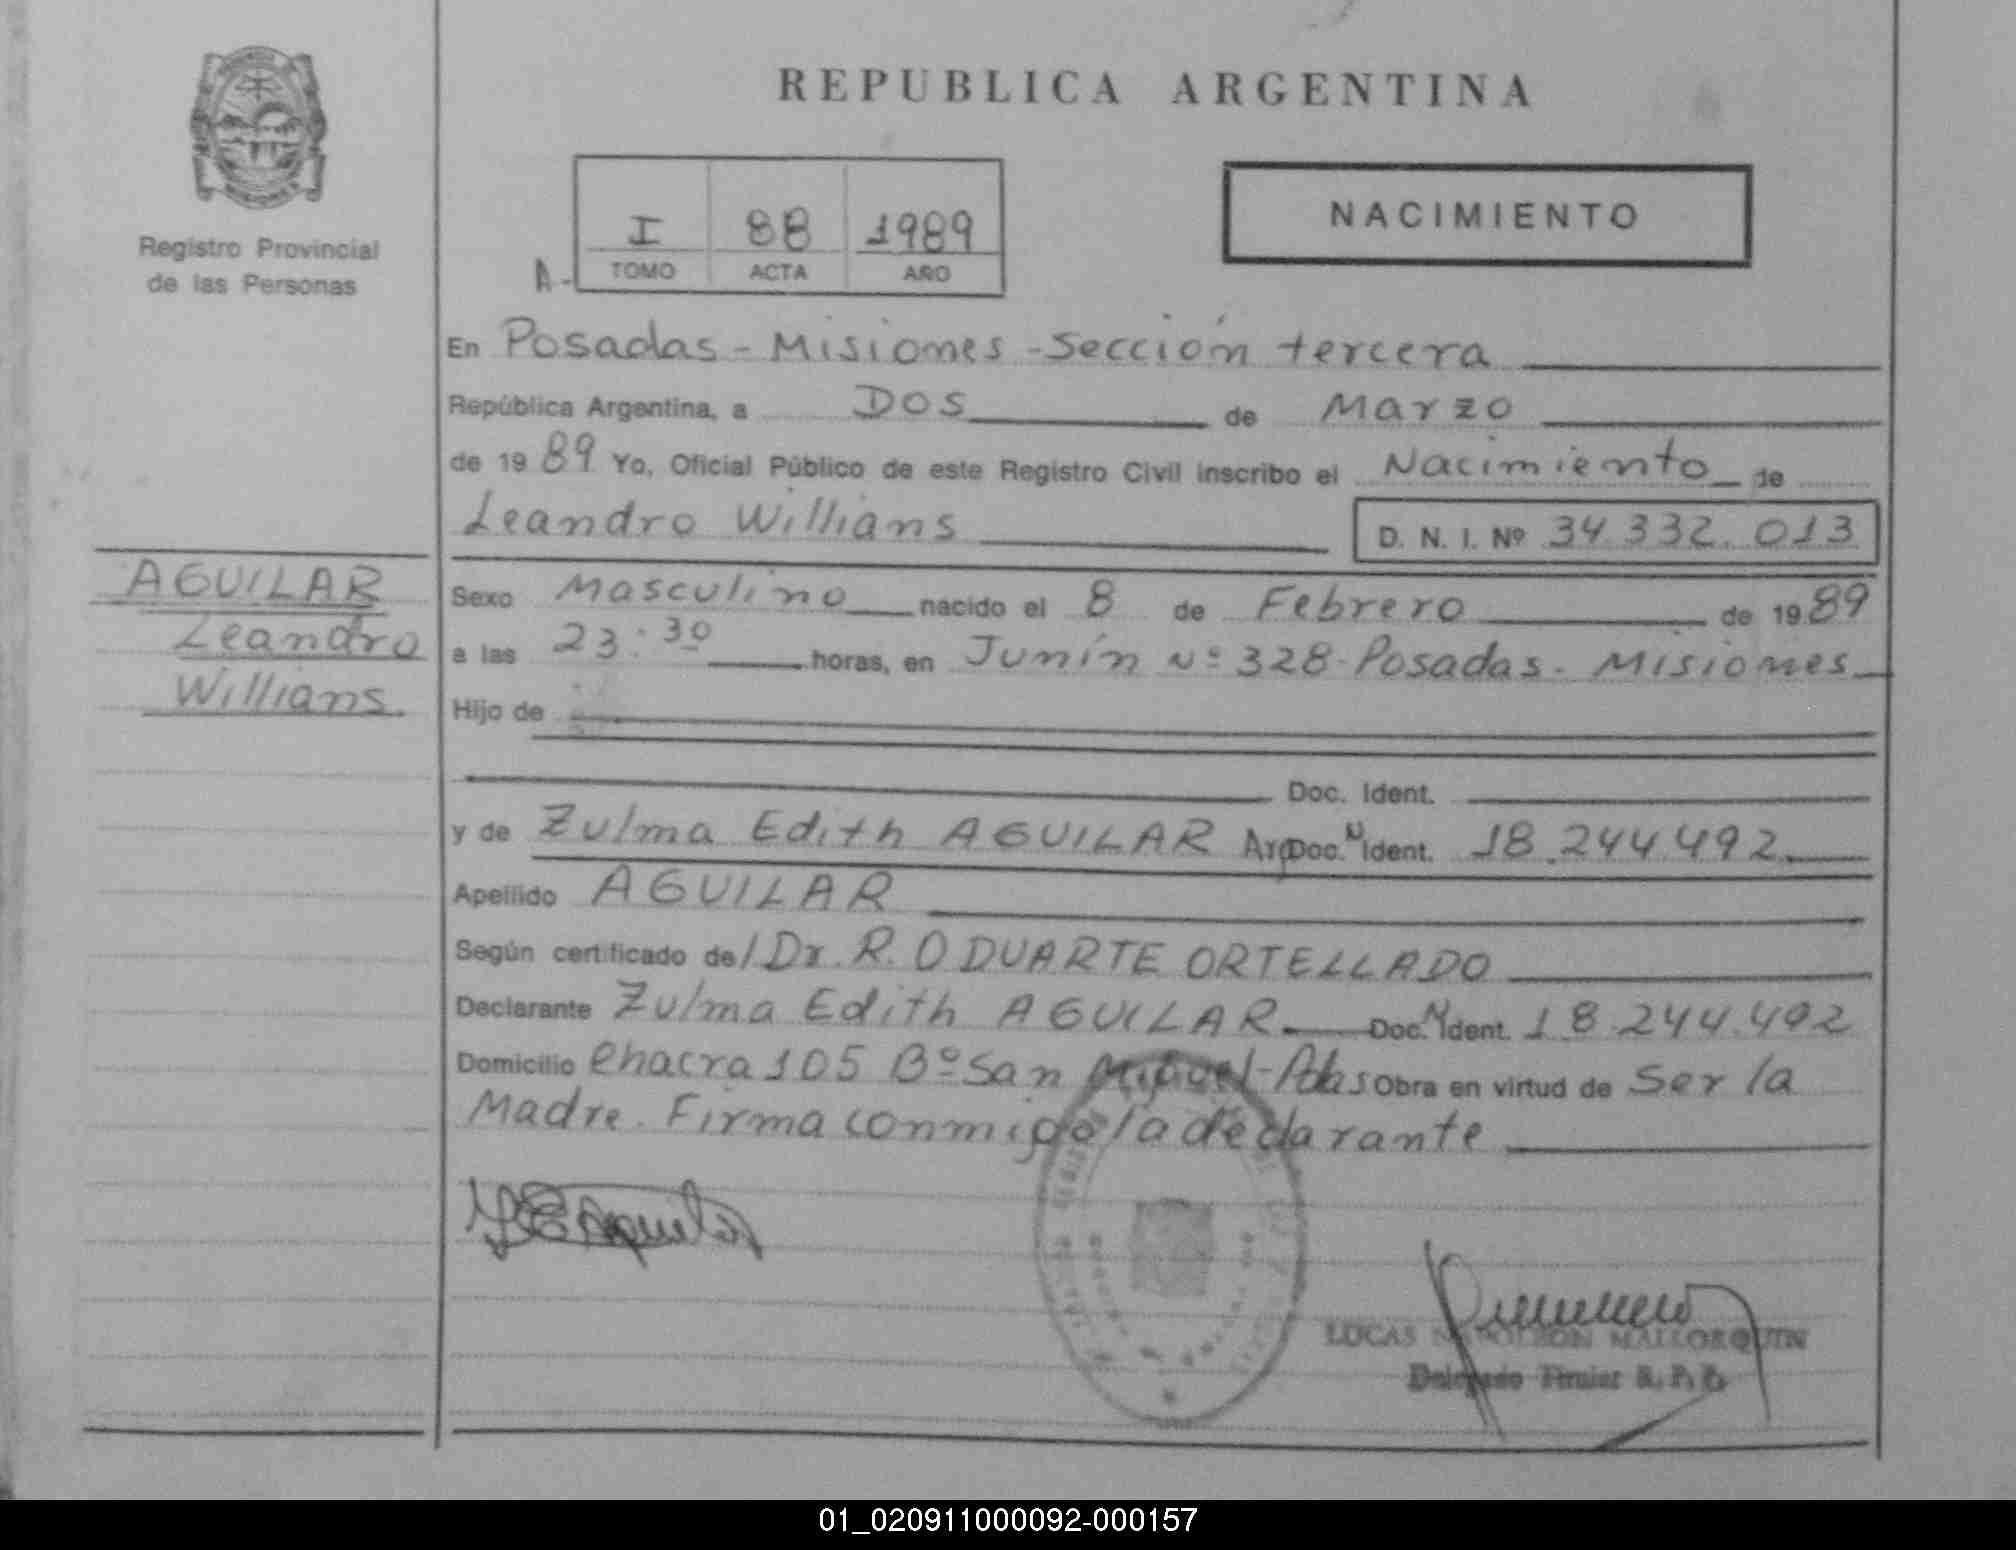 REPUBLICA ARGENTINA
Registro Provincial
de las Personas
NACIMIENTO
I 88 1989
A- TOMO ACTA AÑO
En Posadas - Misiones - Sección tercera
República Argentina, a DOS de Marzo
de 1989 Yo, Oficial Público de este Registro Civil inscribo el Nacimiento de
Leandro Willians D. N. I. Nº 34.332.013
AGUILAR
Leandro
Willians.
Sexo Masculino nacido el 8 de Febrero de 1989
a las 23:30 horas, en Junín Nº 328- Posadas- Misiones
Hijo de
Doc. Ident.
y de Zulma Edith AGUILAR Arg Doc. N Ident. 18.244.492
Apellido AGUILAR
Según certificado de/ Dr. R. O DUARTE ORTELLADO
Declarante Zulma Edith AGUILAR Doc. N Ident. 18.244.492
Domicilio Chacra 105 Bº San Miguel - Pdas Obra en virtud de Ser la
Madre. Firma conmigo la declarante
LUCAS NAPOLEON MALLORQUIN
Delegado Titular R. P. P.
01_020911000092-000157